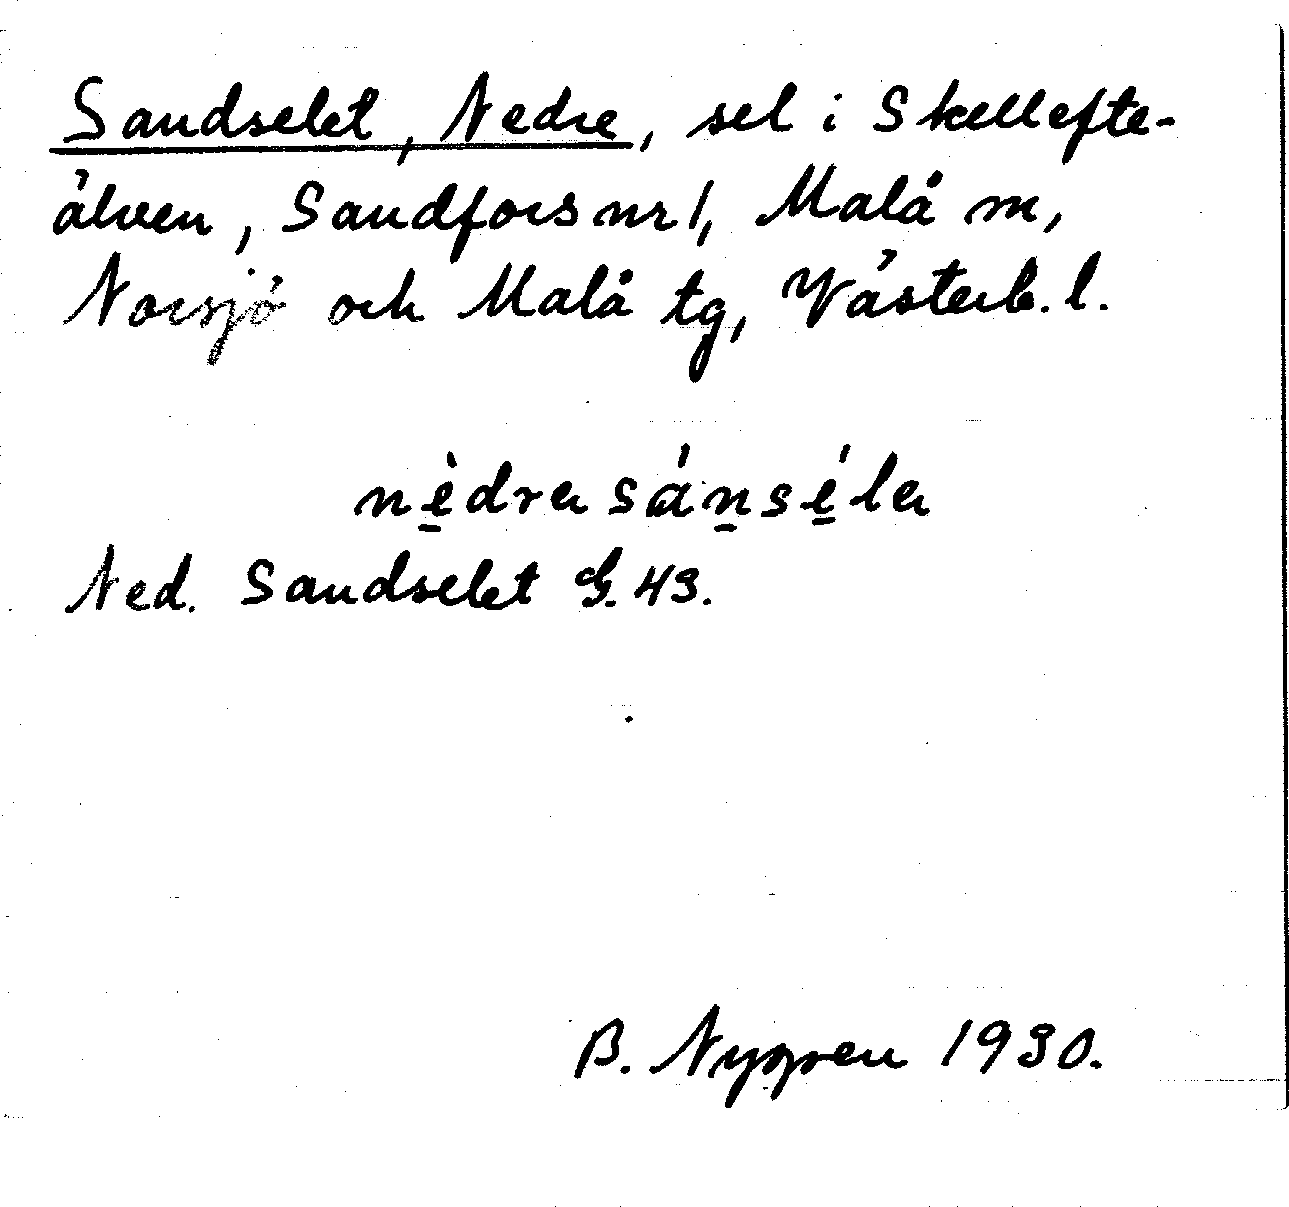 Sandselet, Nedre, sel i Skellefte-
älven, Sandfors nr 1, Malå m,
Norsjö och Malå tg, Västerb. l.
nèdra sánséla
Ned. Sandselet G. 43.
B. Nygren 1930.